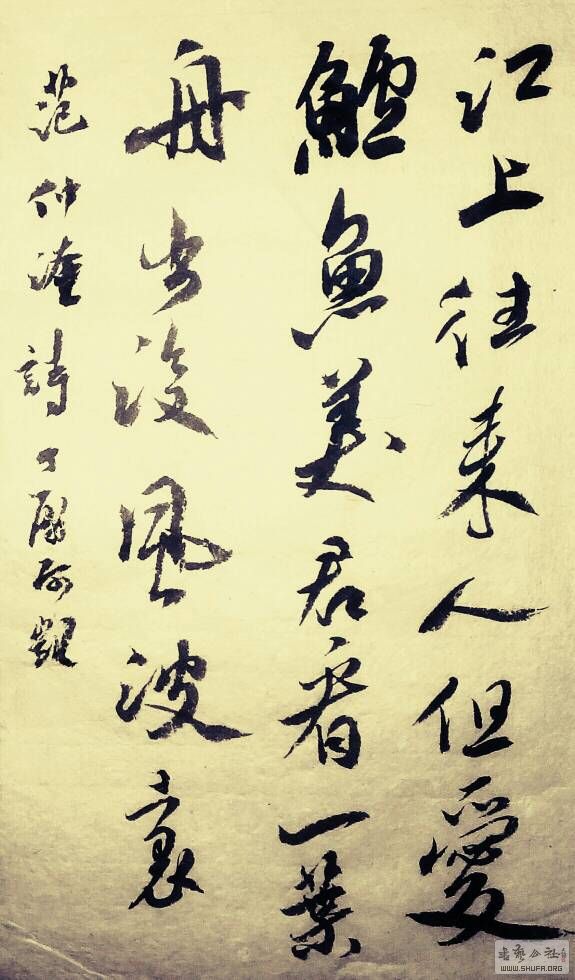 江上往来人但愛
鱸魚美君看一葉
舟出没風波裏
范仲淹詩
书艺公社
WWW.SHUFA.ORG